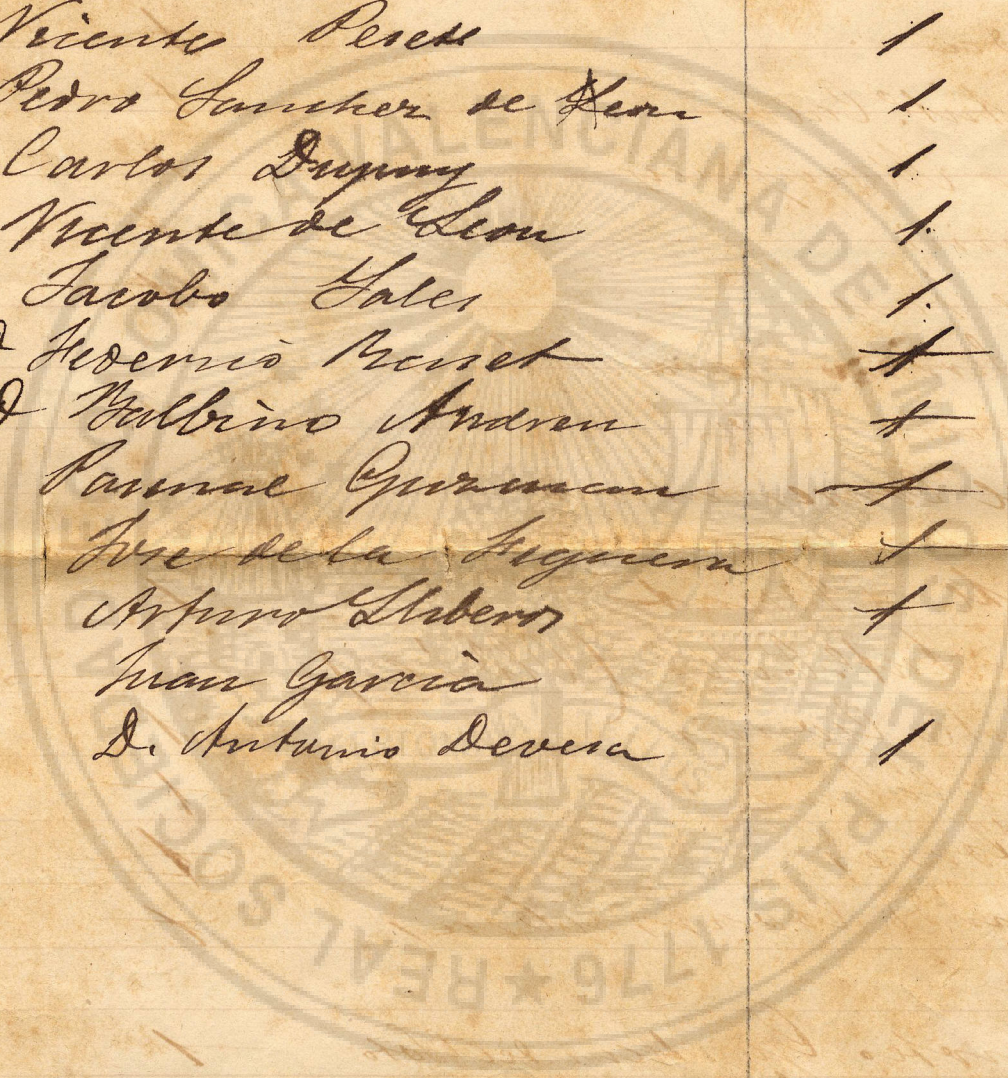 Vicente Perete 1
Pedro Sanchez de Leon 1.
Carlos Dupuy 1.
Vicente de Leon 1.
Jacobo Sales 1.
Federico 1
D Balbino Andreu 1
Pascual Guzman 1
Jose de la Figuera 1
Arturo Lliberos 1
Juan Garcià
D. Antonio Devesa 1
REAL SOCIEDAD ECONOMICA VALENCIANA DE AMIGOS DEL PAIS 1776 ★